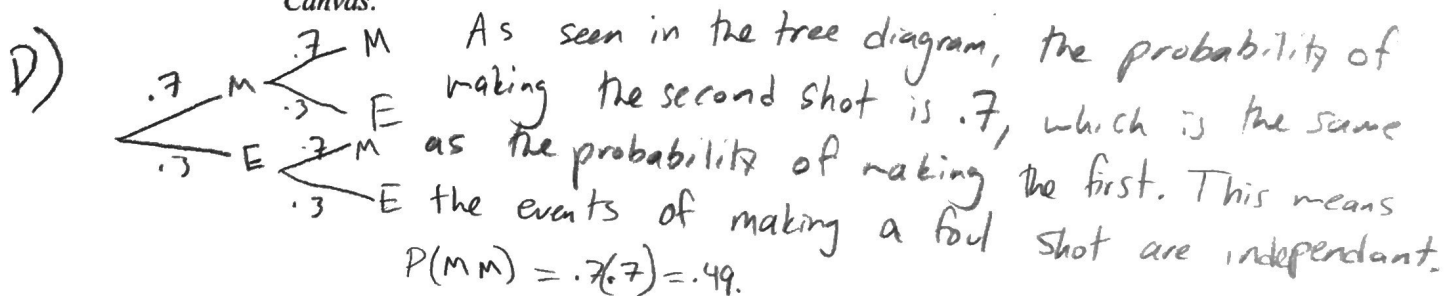 Canvas.
D) .7 M .7 M As seen in the tree diagram, the probability of
.3 E making the second shot is .7, which is the same
.3 E .7 M as the probability of making the first. This means
.3 E the events of making a foul shot are independant.
P(MM) = .7(.7) = .49.